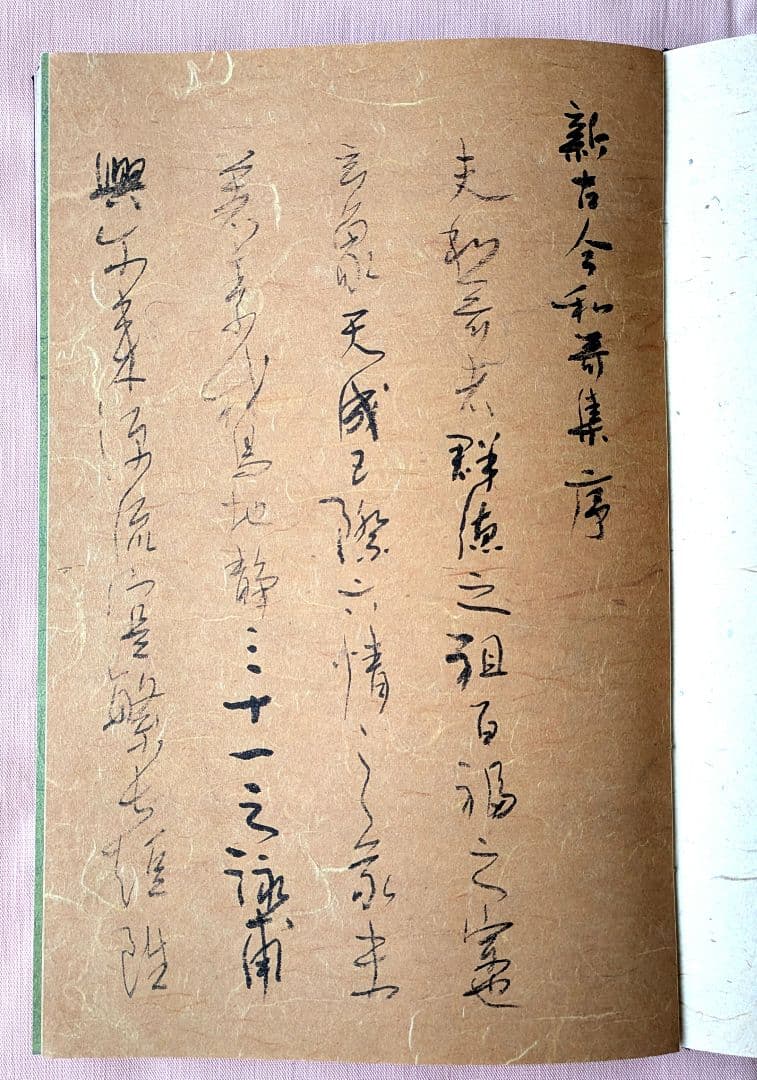 新古今和哥集序
夫和哥者群徳之祖百福之宗也
玄象天成五際六情之義未
著素鵞地静三十一之詠甫
興尓来源流寔繁長短雖